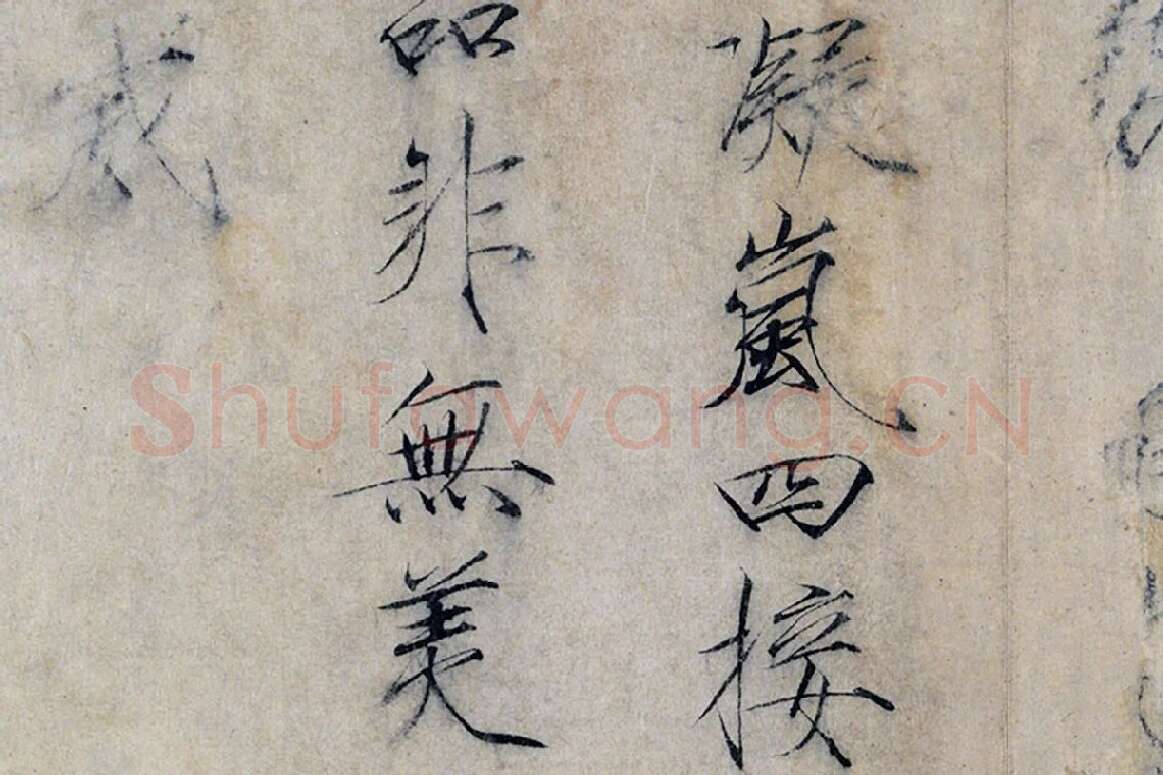 凝嵐四接
品非無美
Shufawang.CN